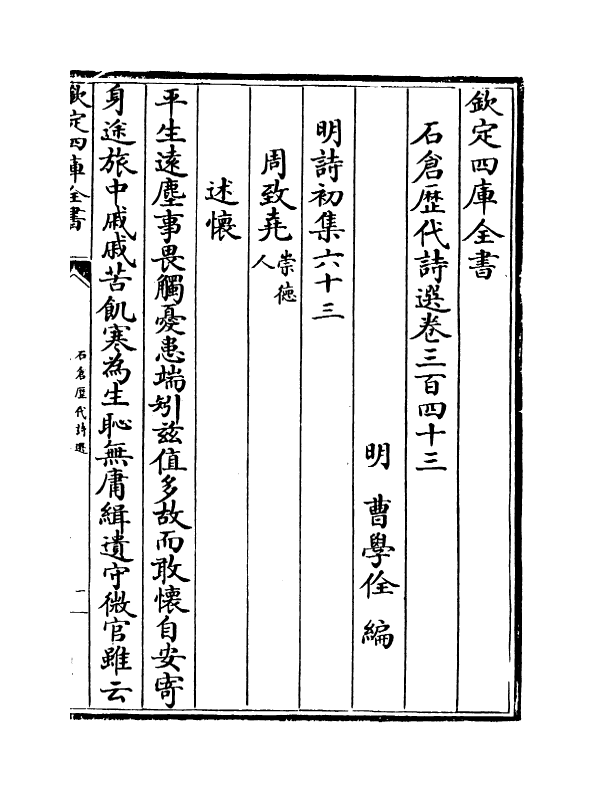 欽定四庫全書
石倉歴代詩選卷三百四十三
明 曹學佺 編
明詩初集六十三
周致堯崇德人
述懷
平生遠塵事畏觸憂患端矧兹值多故而敢懷自安寄
身途旅中戚戚苦飢寒為生恥無庸緝遺守微官雖云
欽定四庫全書
石倉歴代詩選
一